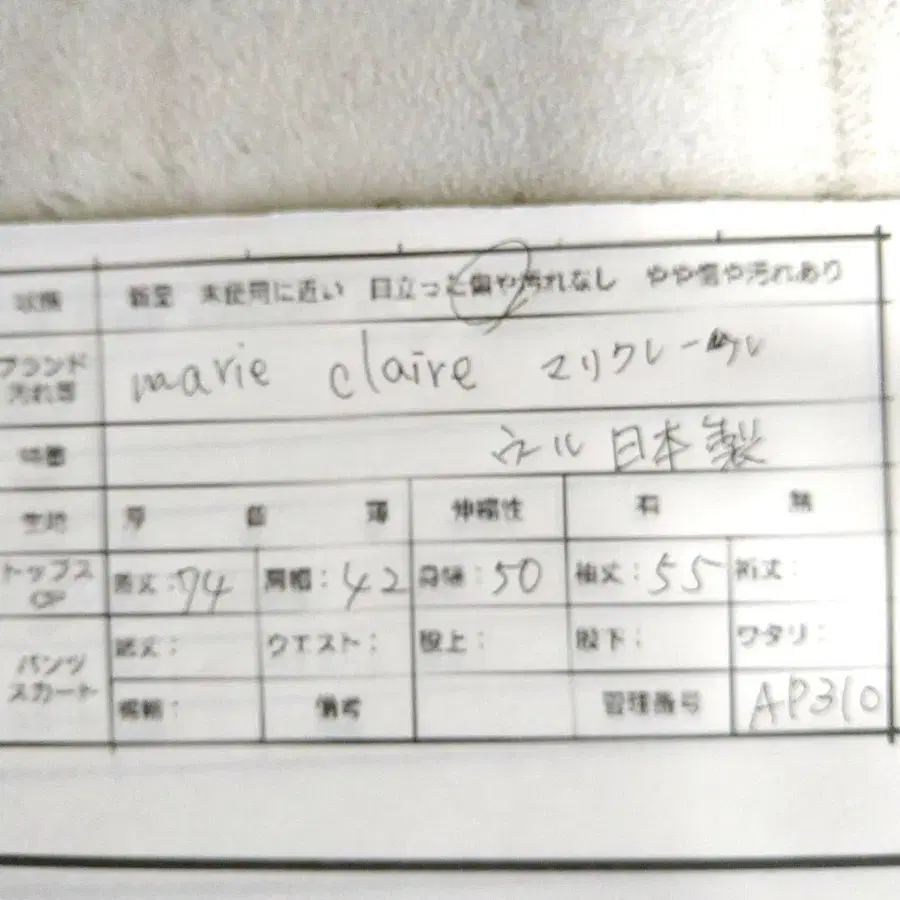 状態 新品 未使用に近い 目立った傷や汚れなし やや傷や汚れあり
ブランド marie claire マリクレール
汚れ等
特徴 ウール 日本製
生地 厚 普 薄 伸縮性 有 無
トップス OP 着丈:74 肩幅:42 身幅:50 袖丈:55 裄丈:
パンツ スカート 総丈: ウエスト: 股上: 股下: ワタリ:
裾幅: 備考 管理番号 AP310